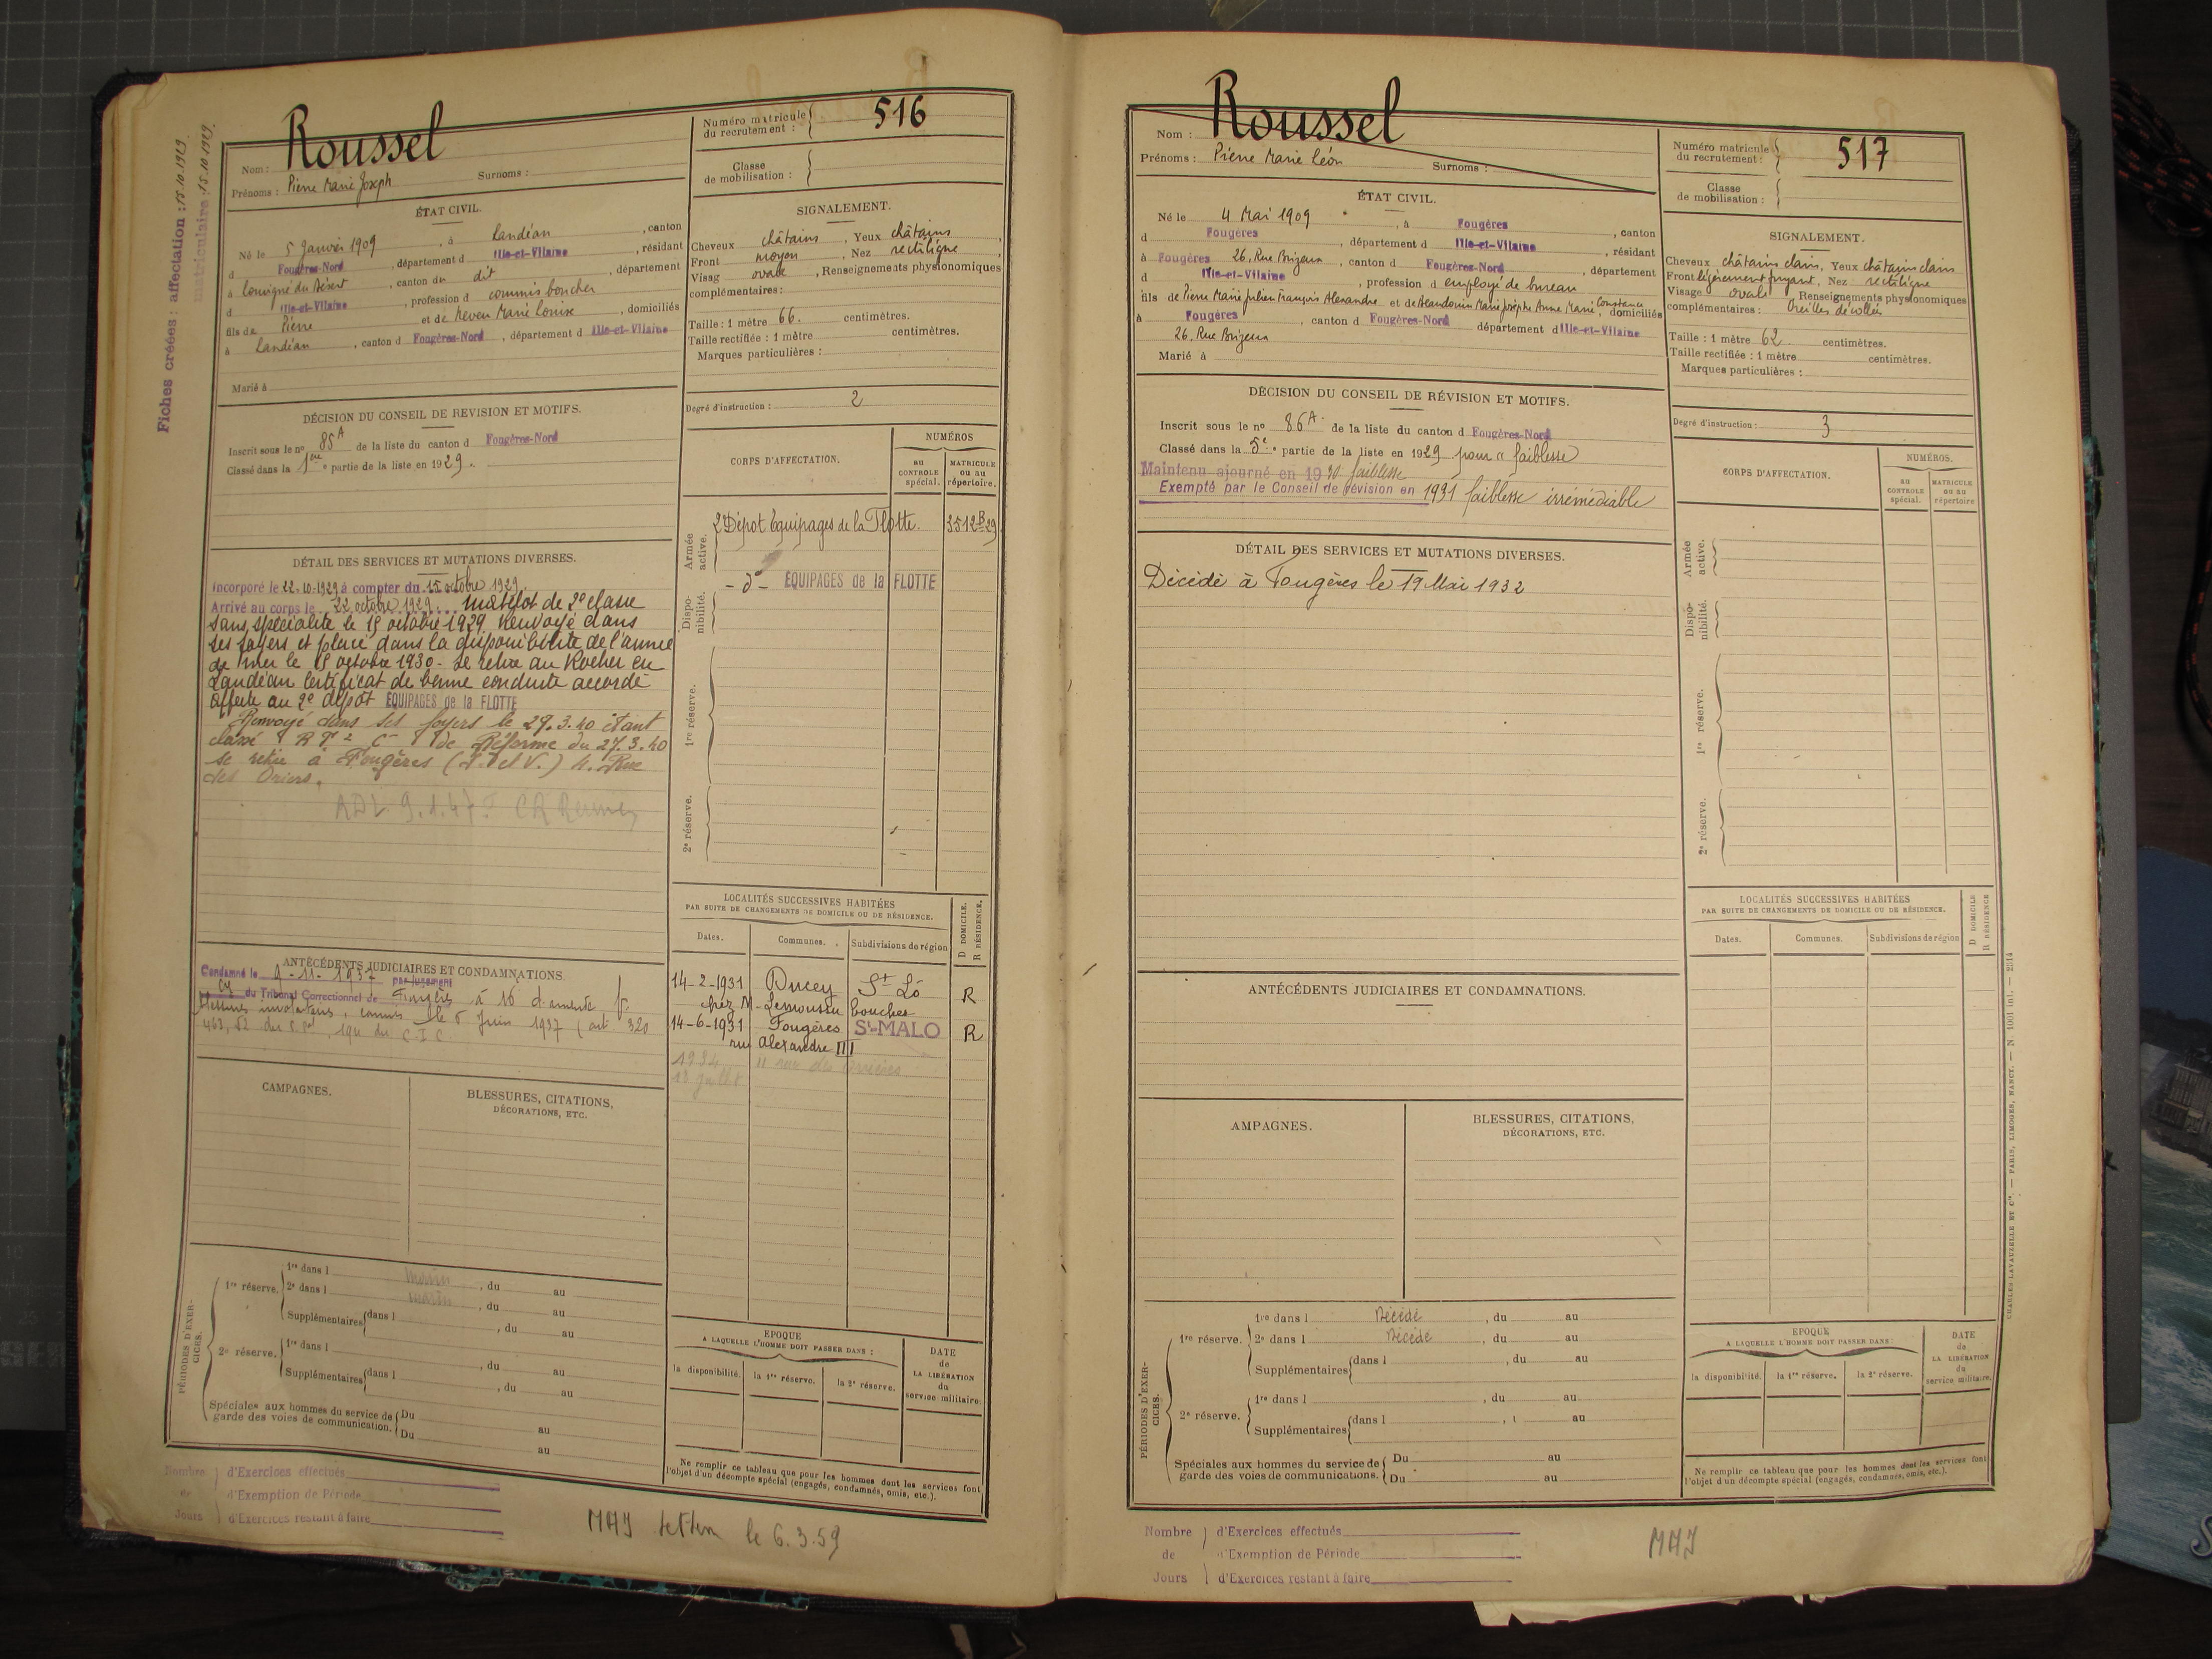 Fiches créées : affectation : 15.10.1929
matriculaire : 15.10.1929.
Nom : Roussel
Prénoms : Pierre Marie Joseph Surnoms :
Numéro matricule du recrutement : 516
Classe de mobilisation :
ÉTAT CIVIL.
Né le 5 Janvier 1909, à Landéan, canton
d Fougères-Nord, département d Ille-et-Vilaine, résidant
à Louvigné du Désert, canton du dit, département
d Ille-et-Vilaine, profession d commis boucher
fils de Pierre et de Neveu Marie Louise, domiciliés
à Landéan, canton d Fougères-Nord, département d Ille-et-Vilaine
Marié à
SIGNALEMENT.
Cheveux châtains, Yeux châtains,
Front moyen, Nez rectiligne,
Visag ovale, Renseignements physionomiques
complémentaires :
Taille : 1 mètre 66. centimètres.
Taille rectifiée : 1 mètre centimètres.
Marques particulières :
Degré d'instruction : 2
DÉCISION DU CONSEIL DE REVISION ET MOTIFS.
Inscrit sous le nº 85A de la liste du canton d Fougères-Nord
Classé dans la 1ère partie de la liste en 1929.
DÉTAIL DES SERVICES ET MUTATIONS DIVERSES.
Incorporé le 22-10-1929 à compter du 15 octobre 1929.
Arrivé au corps le 22 octobre 1929. Matelot de 2e classe
sans spécialité le 15 octobre 1929. Renvoyé dans
ses foyers et placé dans la disponibilité de l'armée
de mer le 15 octobre 1930 - Se retire au Rocher en
Landéan Certificat de bonne conduite accordé
Affecté au 2e dépôt ÉQUIPAGES de la FLOTTE
Renvoyé dans ses foyers le 27.3.40 étant
classé de Réforme du 27.3.40
se retire à Fougères (I. et V.) 4. Rue
des
ADL 9.1.47 CR Rennes
CORPS D'AFFECTATION.
NUMÉROS
AU CONTROLE spécial.
MATRICULE ou au répertoire.
Armée active.
2 Dépôt Equipages de la Flotte. 3512 B 29
Disponibilité.
- dº - ÉQUIPAGES de la FLOTTE
1re réserve.
2e réserve.
ANTÉCÉDENTS JUDICIAIRES ET CONDAMNATIONS.
Condamné le 9-11-1937 par jugement
du Tribunal Correctionnel de Fougères à 16 d'amende
blessures involontaires, commis le 6 Juin 1937 (art 320
463, 52 du C. Pal, 194 du C.I.C.
CAMPAGNES.
BLESSURES, CITATIONS,
DÉCORATIONS, ETC.
LOCALITÉS SUCCESSIVES HABITÉES
PAR SUITE DE CHANGEMENTS DE DOMICILE OU DE RÉSIDENCE.
D DOMICILE. R RÉSIDENCE.
Dates. Communes. Subdivisions de région
14-2-1931 Ducey St Lô R
chez M. Lemoussu boucher
14-6-1931 Fougères St-MALO R
rue Alexandre III
1934 11 rue des
18 juillet
PÉRIODES D'EXERCICES.
1re réserve. 1re dans l marin, du au
2e dans l marin, du au
Supplémentaires dans l, du au
2e réserve. 1re dans l, du au
Supplémentaires dans l, du au
Spéciales aux hommes du service de garde des voies de communication. Du au
Du au
EPOQUE
A LAQUELLE L'HOMME DOIT PASSER DANS :
la disponibilité. la 1re réserve. la 2e réserve.
DATE de LA LIBÉRATION du service militaire.
Ne remplir ce tableau que pour les hommes dont les services font
l'objet d'un décompte spécial (engagés, condamnés, omis, etc.).
Nombre de Jours
d'Exercices effectués
d'Exemption de Période
d'Exercices restant à faire
MAJ le 6.3.59
Nom : Roussel
Prénoms : Pierre Marie Léon Surnoms :
Numéro matricule du recrutement : 517
Classe de mobilisation :
ÉTAT CIVIL.
Né le 4 Mai 1909, à Fougères, canton
d Fougères, département d Ille-et-Vilaine, résidant
à Fougères 26, Rue Brizeux, canton d Fougères-Nord, département
d Ille-et-Vilaine, profession d employé de bureau
fils de Pierre Marie Julien François Alexandre et de Marie Josèphe Anne Marie Constance, domiciliés
à Fougères, canton d Fougères-Nord département d Ille-et-Vilaine
26, Rue Brizeux
Marié à
SIGNALEMENT.
Cheveux châtains clairs, Yeux châtains clairs
Front légèrement fuyant, Nez rectiligne
Visage ovale Renseignements physionomiques
complémentaires : Oreilles décollées
Taille : 1 mètre 62 centimètres.
Taille rectifiée : 1 mètre centimètres.
Marques particulières :
Degré d'instruction : 3
DÉCISION DU CONSEIL DE RÉVISION ET MOTIFS.
Inscrit sous le nº 86A. de la liste du canton d Fougères-Nord
Classé dans la 5e partie de la liste en 1929 pour " faiblesse
Maintenu ajourné en 1930 faiblesse
Exempté par le Conseil de révision en 1931 faiblesse irrémédiable
DÉTAIL DES SERVICES ET MUTATIONS DIVERSES.
Décédé à Fougères le 19 Mai 1932
CORPS D'AFFECTATION.
NUMÉROS.
AU CONTROLE spécial.
MATRICULE ou au répertoire
Armée active.
Disponibilité.
1re réserve.
2e réserve.
ANTÉCÉDENTS JUDICIAIRES ET CONDAMNATIONS.
AMPAGNES.
BLESSURES, CITATIONS,
DÉCORATIONS, ETC.
LOCALITÉS SUCCESSIVES HABITÉES
PAR SUITE DE CHANGEMENTS DE DOMICILE OU DE RÉSIDENCE.
D DOMICILE R RÉSIDENCE
Dates. Communes. Subdivisions de région
PÉRIODES D'EXERCICES.
1re réserve. 1re dans l Décédé, du au
2e dans l Décédé, du au
Supplémentaires dans l, du au
2e réserve. 1re dans l, du au
Supplémentaires dans l, au
Spéciales aux hommes du service de garde des voies de communications. Du au
Du au
EPOQUE
A LAQUELLE L'HOMME DOIT PASSER DANS :
la disponibilité. la 1re réserve. la 2e réserve.
DATE de LA LIBÉRATION du service militaire.
Ne remplir ce tableau que pour les hommes dont les services font
l'objet d'un décompte spécial (engagés, condamnés, omis, etc.).
Nombre de Jours
d'Exercices effectués
d'Exemption de Période
d'Exercices restant à faire
MAJ
CHARLES-LAVAUZELLE ET Cie. — PARIS, LIMOGES, NANCY. — N. 1001 int. — 2814